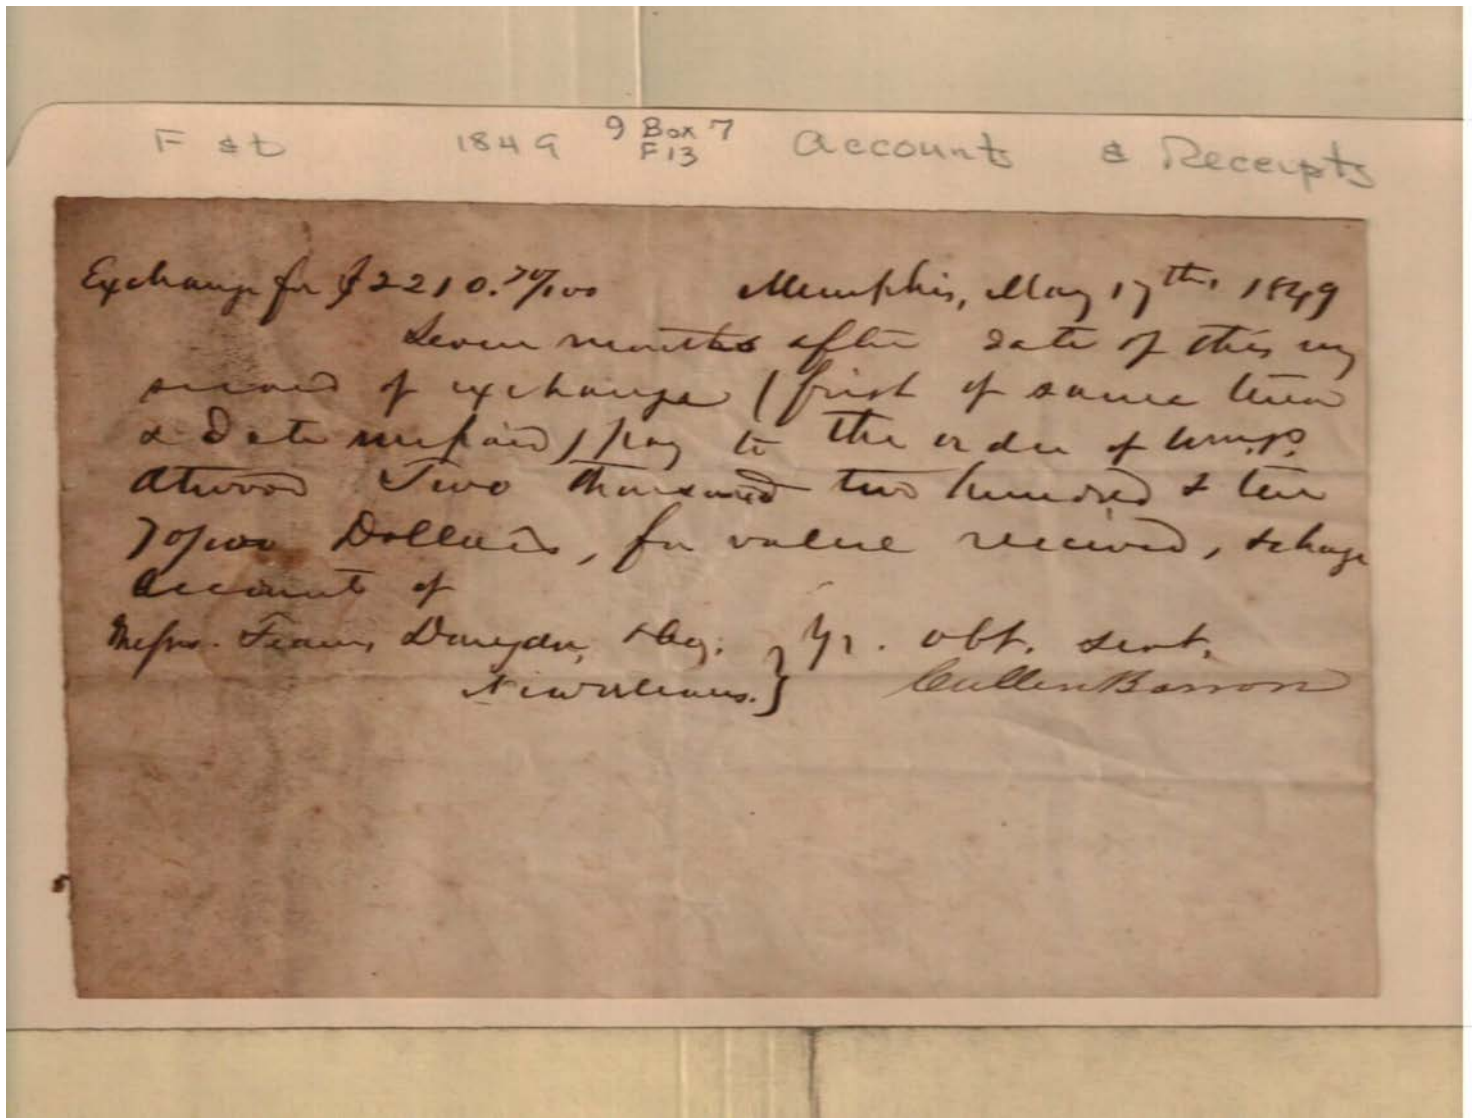 F & D 1849 9 Box 7 Accounts & Receipts
F13
Exchange for $2210.70/100 Memphis, May 17th, 1849
Seven months after date of this my
second of exchange (first of same tenor
& Date unpaid) pay to the order of Wm. P.
Atwood Two thousand two hundred & ten
70/100 Dollars, for value received, & charge
account of
Messrs. & Co. } Yr. obt. servt.
New Orleans. } Cullen Barron